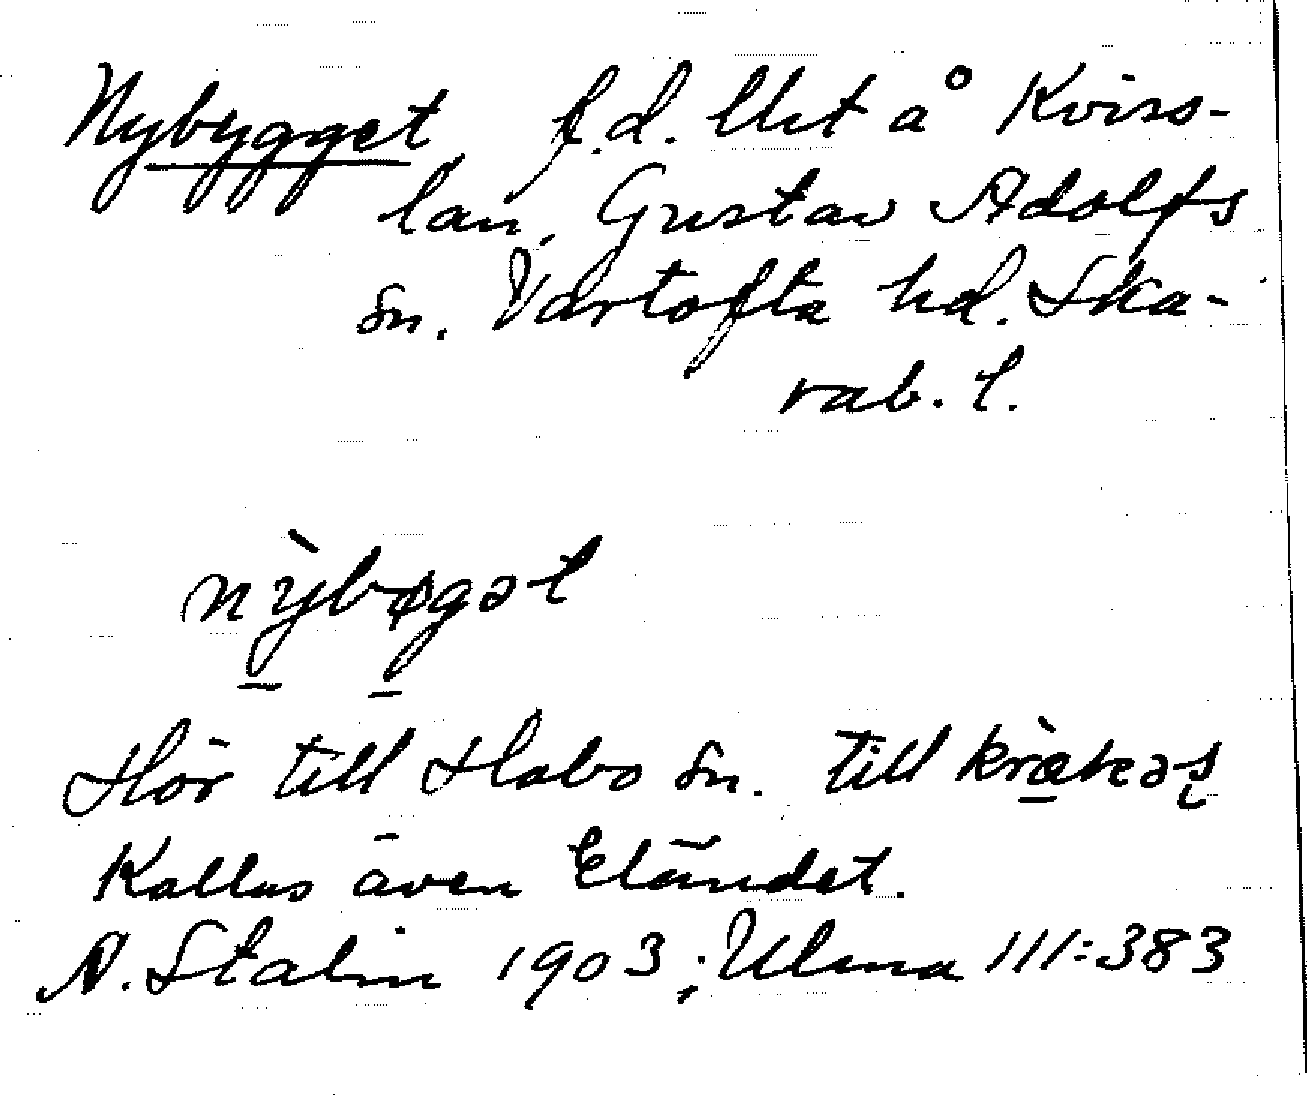 Nybygget f.d. llht å Kviss-
lan, Gustav Adolfs
sn. Vartofta hd. Ska-
rab. l.
nỳbøgət
Hör till Habo sn. till kràkəş
Kallas även Eländet.
A. Stalin 1903; Ulma 111:383